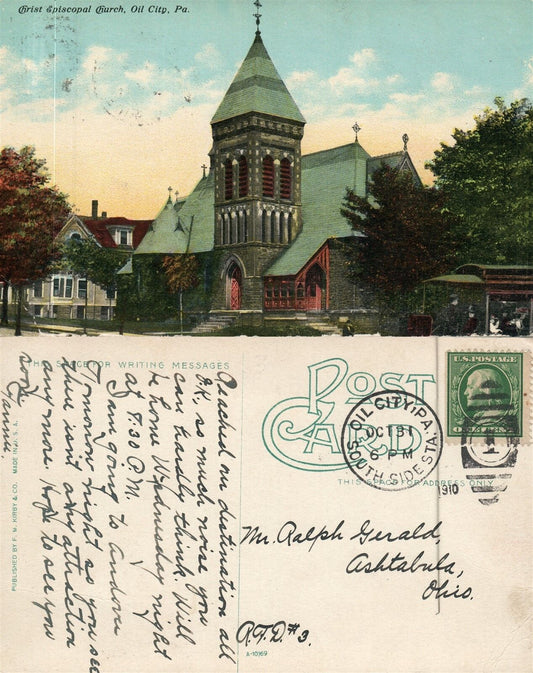 Christ Episcopal Church, Oil City, Pa.
THE SPACE FOR WRITING MESSAGES
POST CARD
THIS SPACE FOR ADDRESS ONLY
OIL CITY, PA.
OCT 31
6 PM
1910
SOUTH SIDE STA.
U.S. POSTAGE
1
Reached my distination all
O.K, so much noise you
can hardly think. Will
be home Wednesday night
at 8:30 P.M.
I am going to
Tomorrow night as you see
there isn't any attraction
any more. Hope to see you
soon
Fannie
Mr. Ralph Gerald,
Ashtabula,
Ohio.
R.F.D. #3.
A-10169
PUBLISHED BY F. M. KIRBY & CO. MADE IN U.S.A.